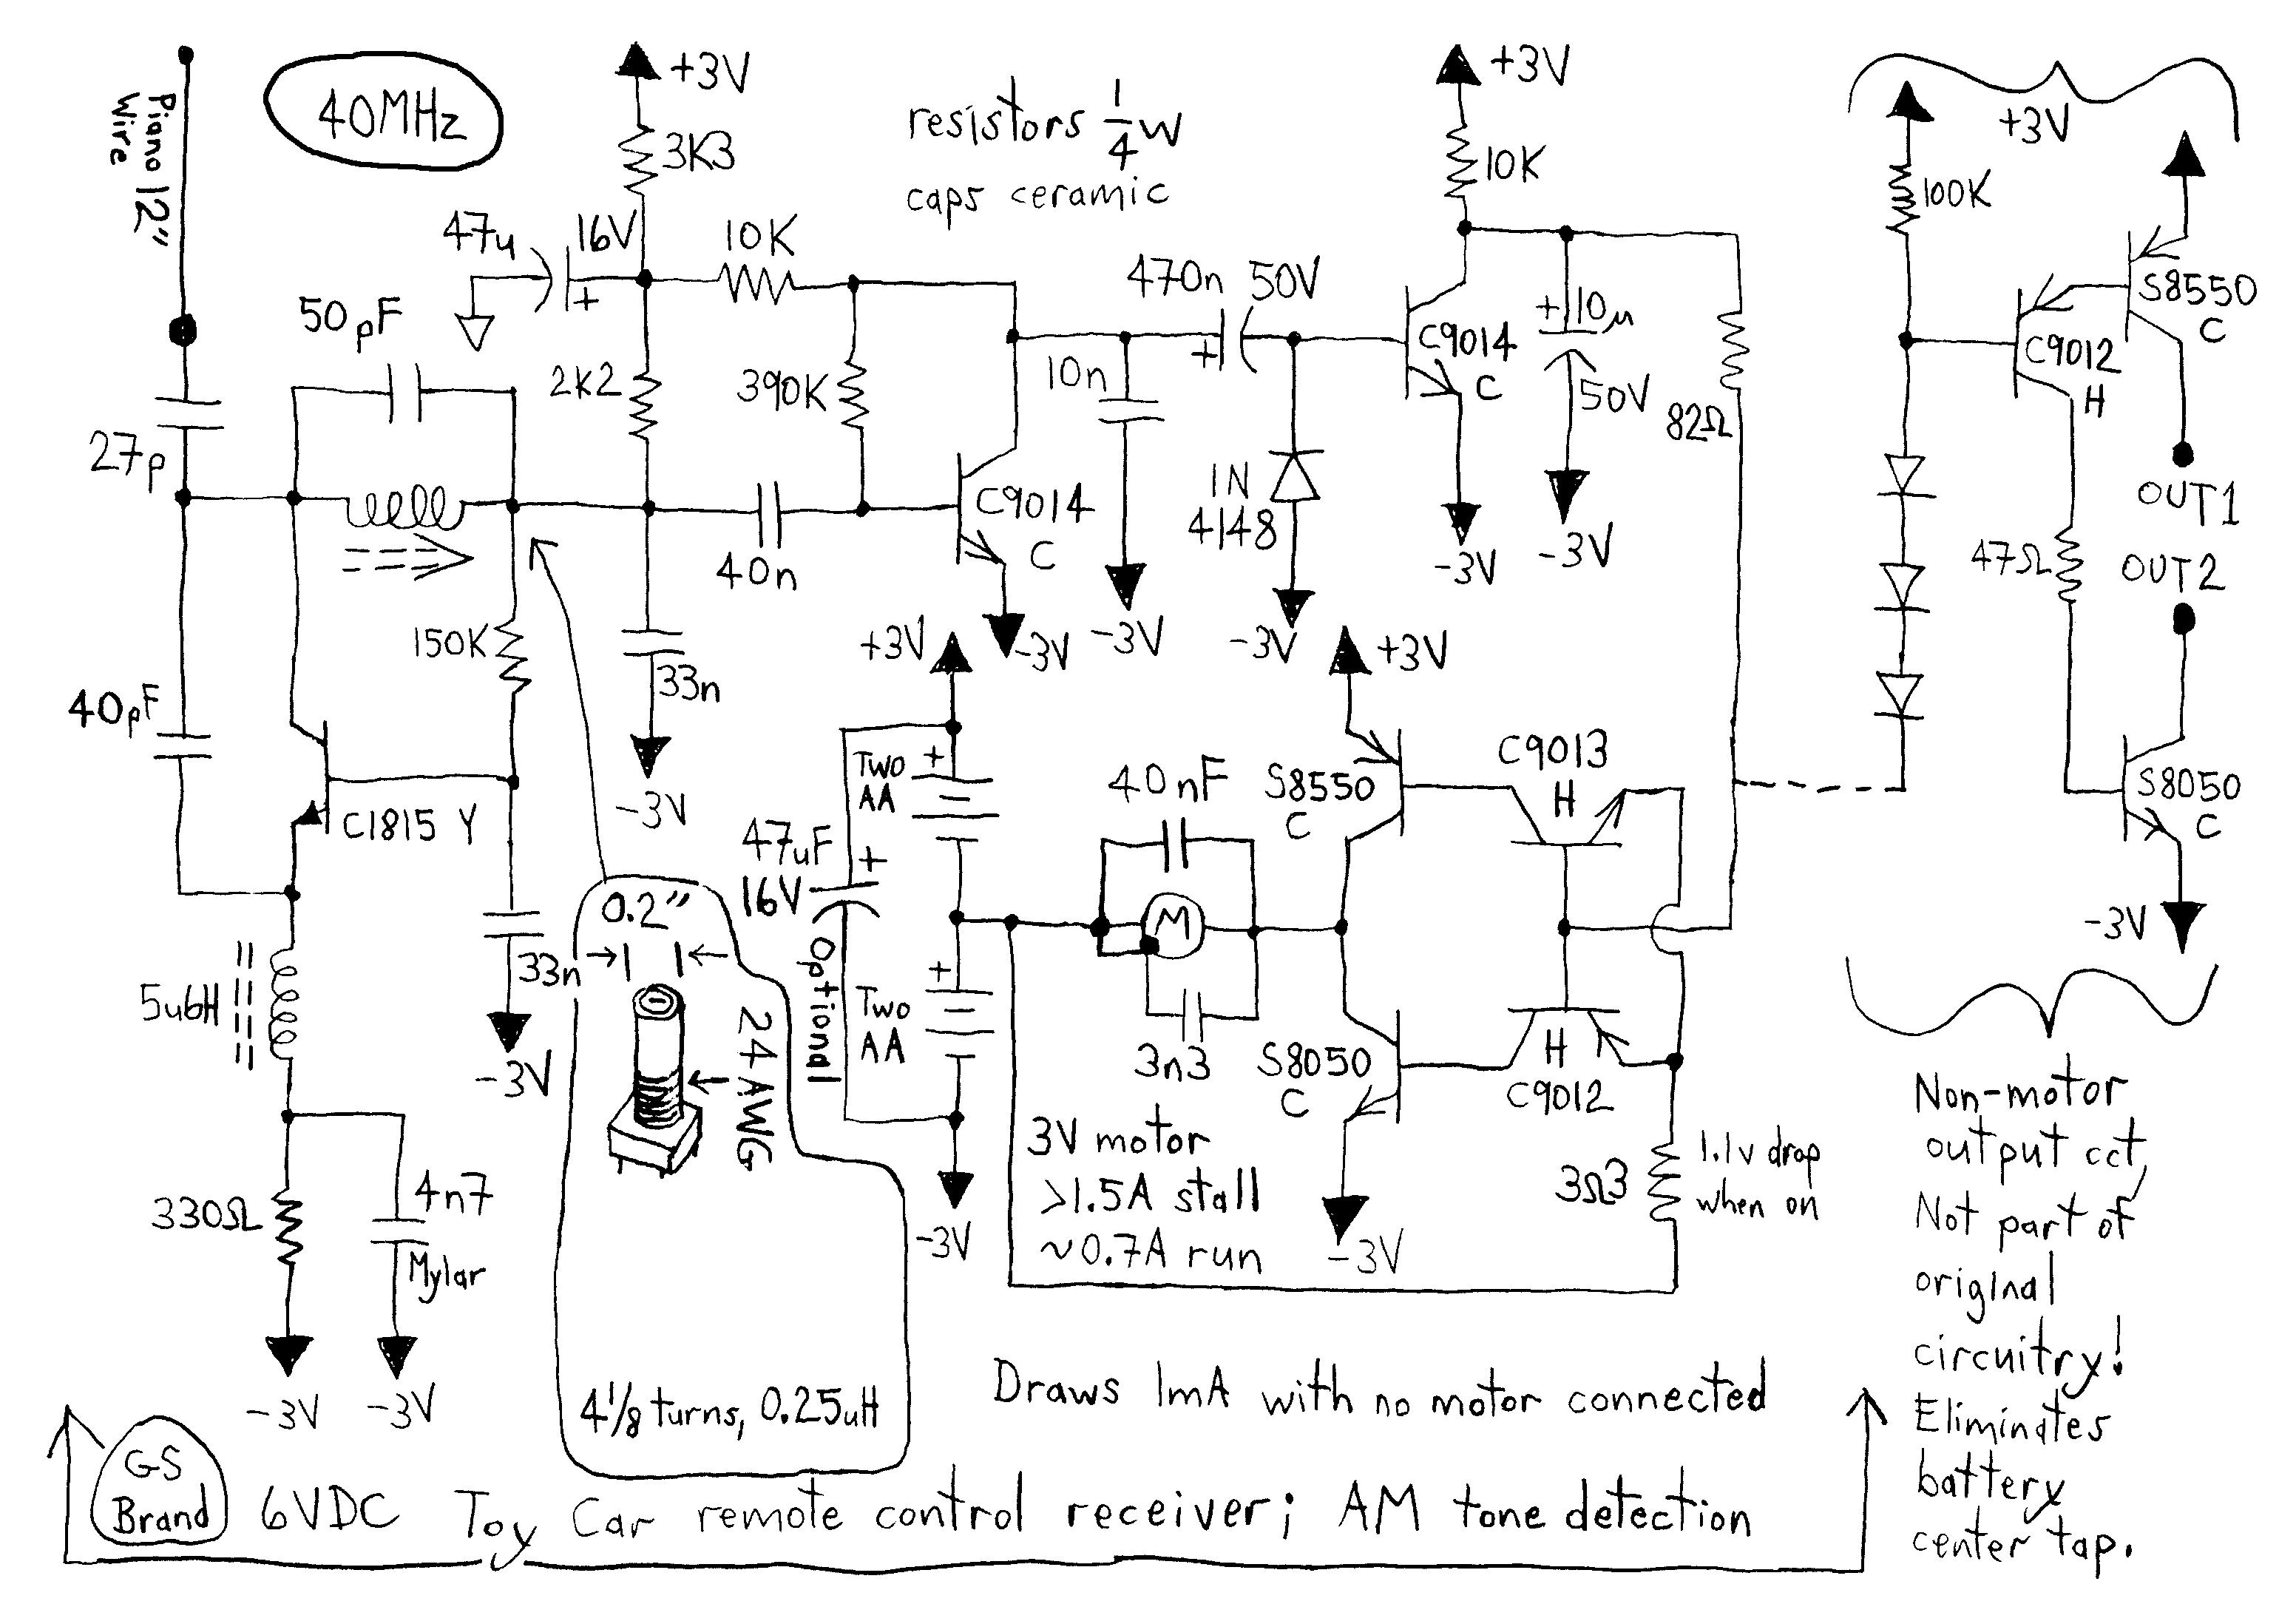 Piano 12"
Wire
40MHz
+3V
3K3
resistors 1/4 W
caps ceramic
+3V
10K
+3V
100K
47u
16V
10K
470n
50V
S8550
C
50pF
2K2
390K
10n
C9014
C
+10µ
50V
82Ω
C9012
H
27p
40n
C9014
C
1N
4148
-3V
-3V
OUT1
OUT2
47Ω
150K
33n
-3V
+3V
-3V
-3V
-3V
+3V
40pF
C1815 Y
Two
AA
+
40nF
S8550
C
C9013
H
S8050
C
47uF
16V
+
Optional
0.2"
M
-3V
33n
-3V
5u6H
24AWG
+
Two
AA
3n3
S8050
C
H
C9012
330Ω
4n7
Mylar
3V motor
>1.5A stall
~0.7A run
-3V
-3V
3Ω3
1.1v drop
when on
Non-motor
output cct,
Not part of
original
circuitry!
Eliminates
battery
center tap.
-3V
-3V
4 1/8 turns, 0.25uH
Draws 1mA with no motor connected
GS
Brand
6VDC Toy Car remote control receiver; AM tone detection